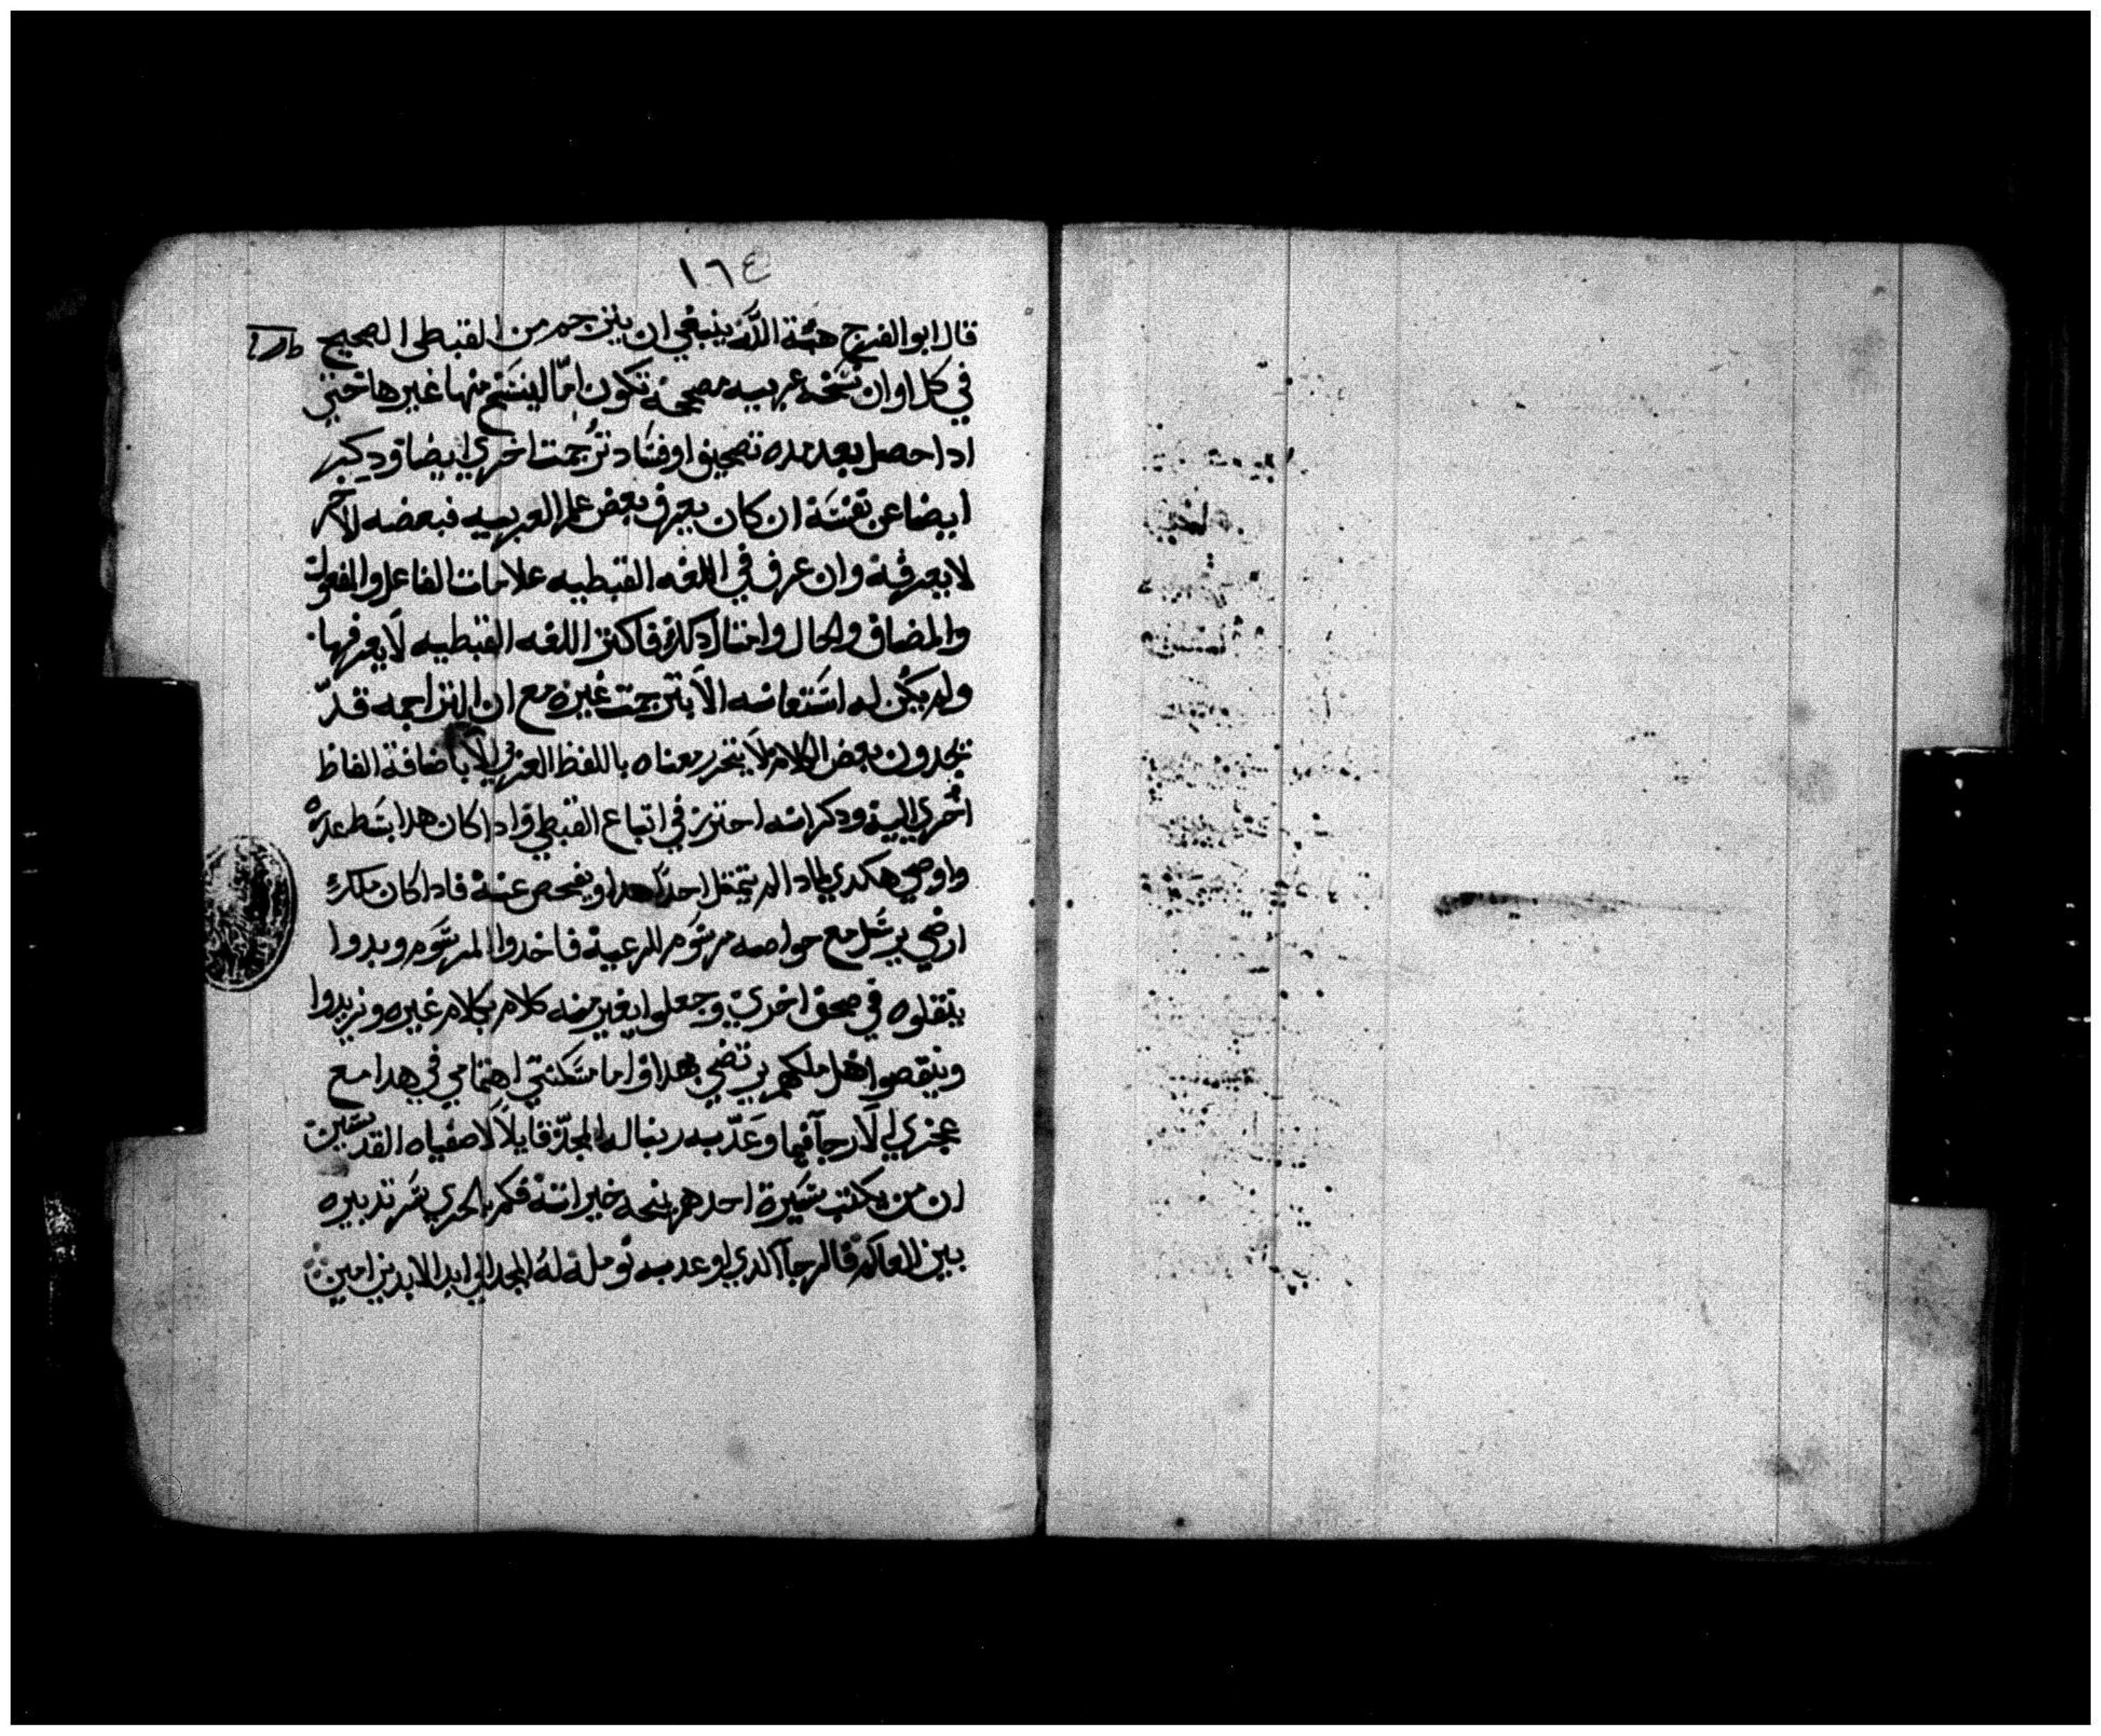 ١٦٤
قال ابو الفرج هبة الله ينبغي ان يترجم من القبطى الصحيح
في كل اوان نسخه عربيه مصححة تكون امّا لينسخ منها غيرها حتى
ادا حصل بعد مده تصحيف او فساد ترجمت اخري ايضا ودكر
ايضا عن نفسة ان كان يعرف بعض علم العربيه فبعضه الاخر
لا يعرفة وان عرف في اللغه القبطيه علامات الفاعل والمفعول
والمضاف والحال وامثال دلك فاكثر اللغه القبطيه لا يعرفها
ولم يكن له استعانه الا بترجمت غيره مع ان التراجمه قد
يجدون بعض الكلام لا يتحرر معناه باللفظ العربي الا باضافة الفاظ
اخري الية ودكر انه احترز في اتباع القبطي وادا كان هدا بسط عدره
واوصي هكدي لمادا لم يتحفل احد لهدا ويفحص عنة فادا كان ملك
ارضي يرسل مع خواصه مرسوم للرعية فاخدوا المرسوم وبدوا
ينقلوه في صحف اخري وجعلوا يغير منه كلام بكلام غيره ونريدوا
وينقصوا هل ملكهم يرتضي بهدا واما مسكنتي اهتمامي في هدا مع
عجزي الا لارجا فيما وعد به ربنا له المجد قايلا لاصفياه القديسين
ان من يكتب سيرة احدهم ينحه خيراتة فكم بالحري نشر تدبيره
بين العالم فالرجا الدي اوعد به نومله له المجد الي ابد الابدين امين